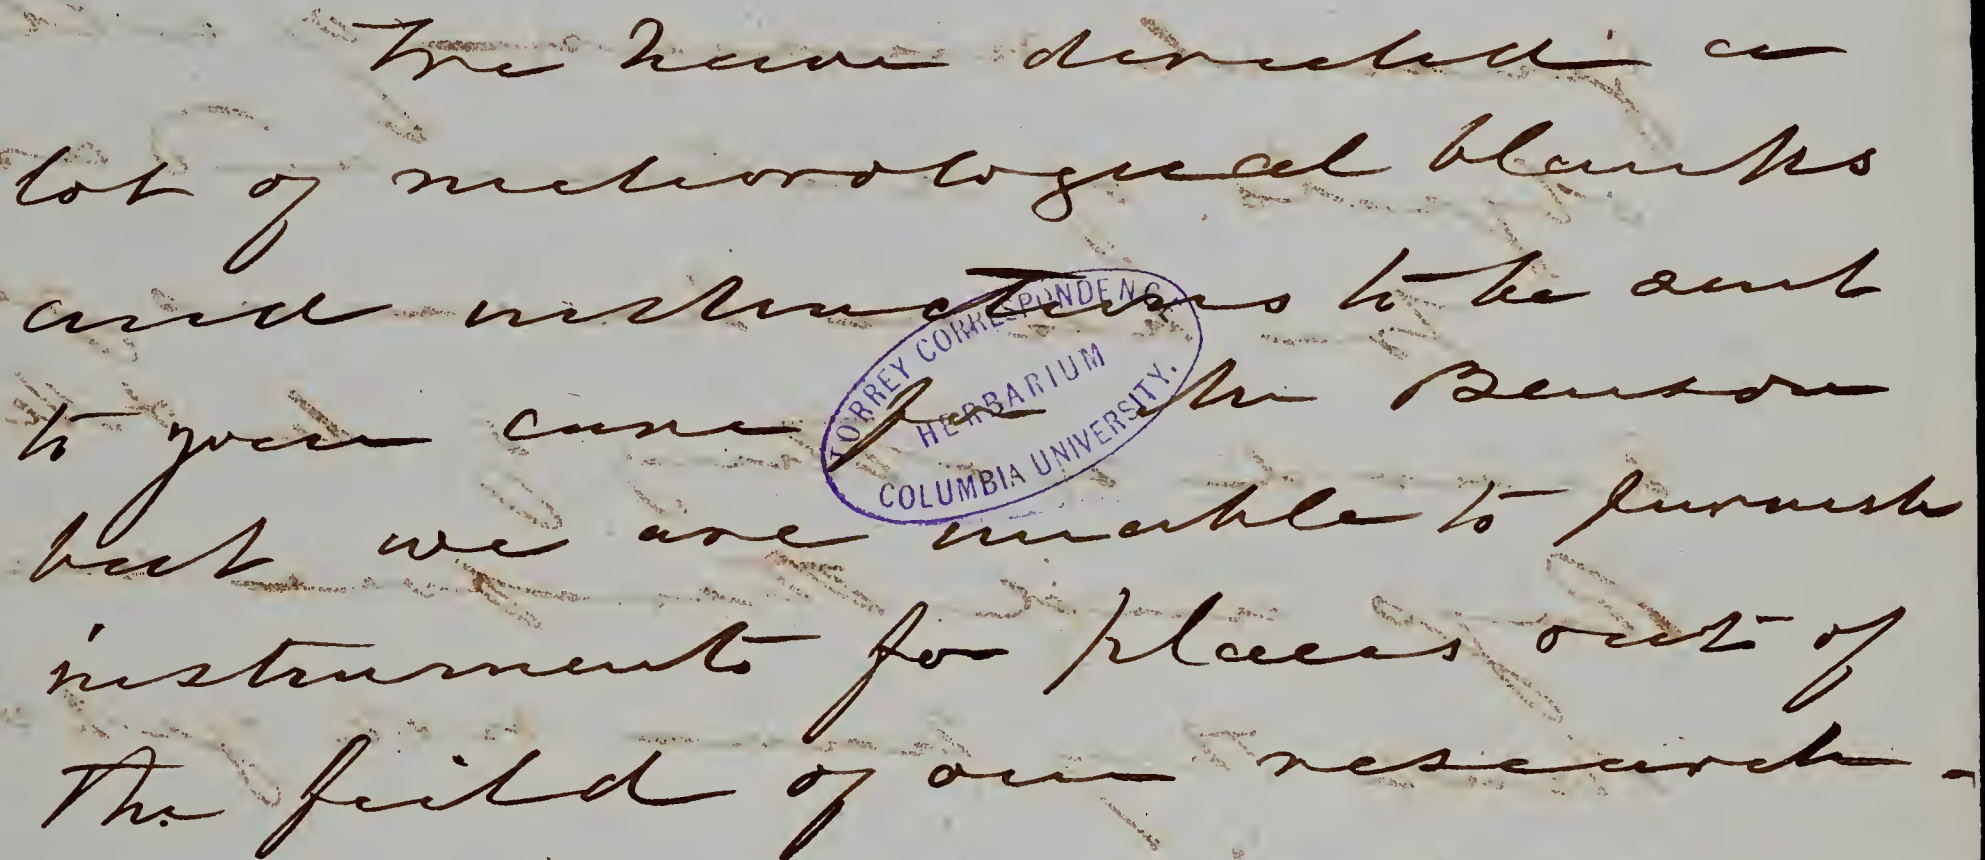 We have directed a
lot of meteorological blanks
and instructions to be sent
to your care for Mr Benson
but we are unable to furnish
instruments for places out of
the feild of our research -
TORREY CORRESPONDENCE
HERBARIUM
COLUMBIA UNIVERSITY.